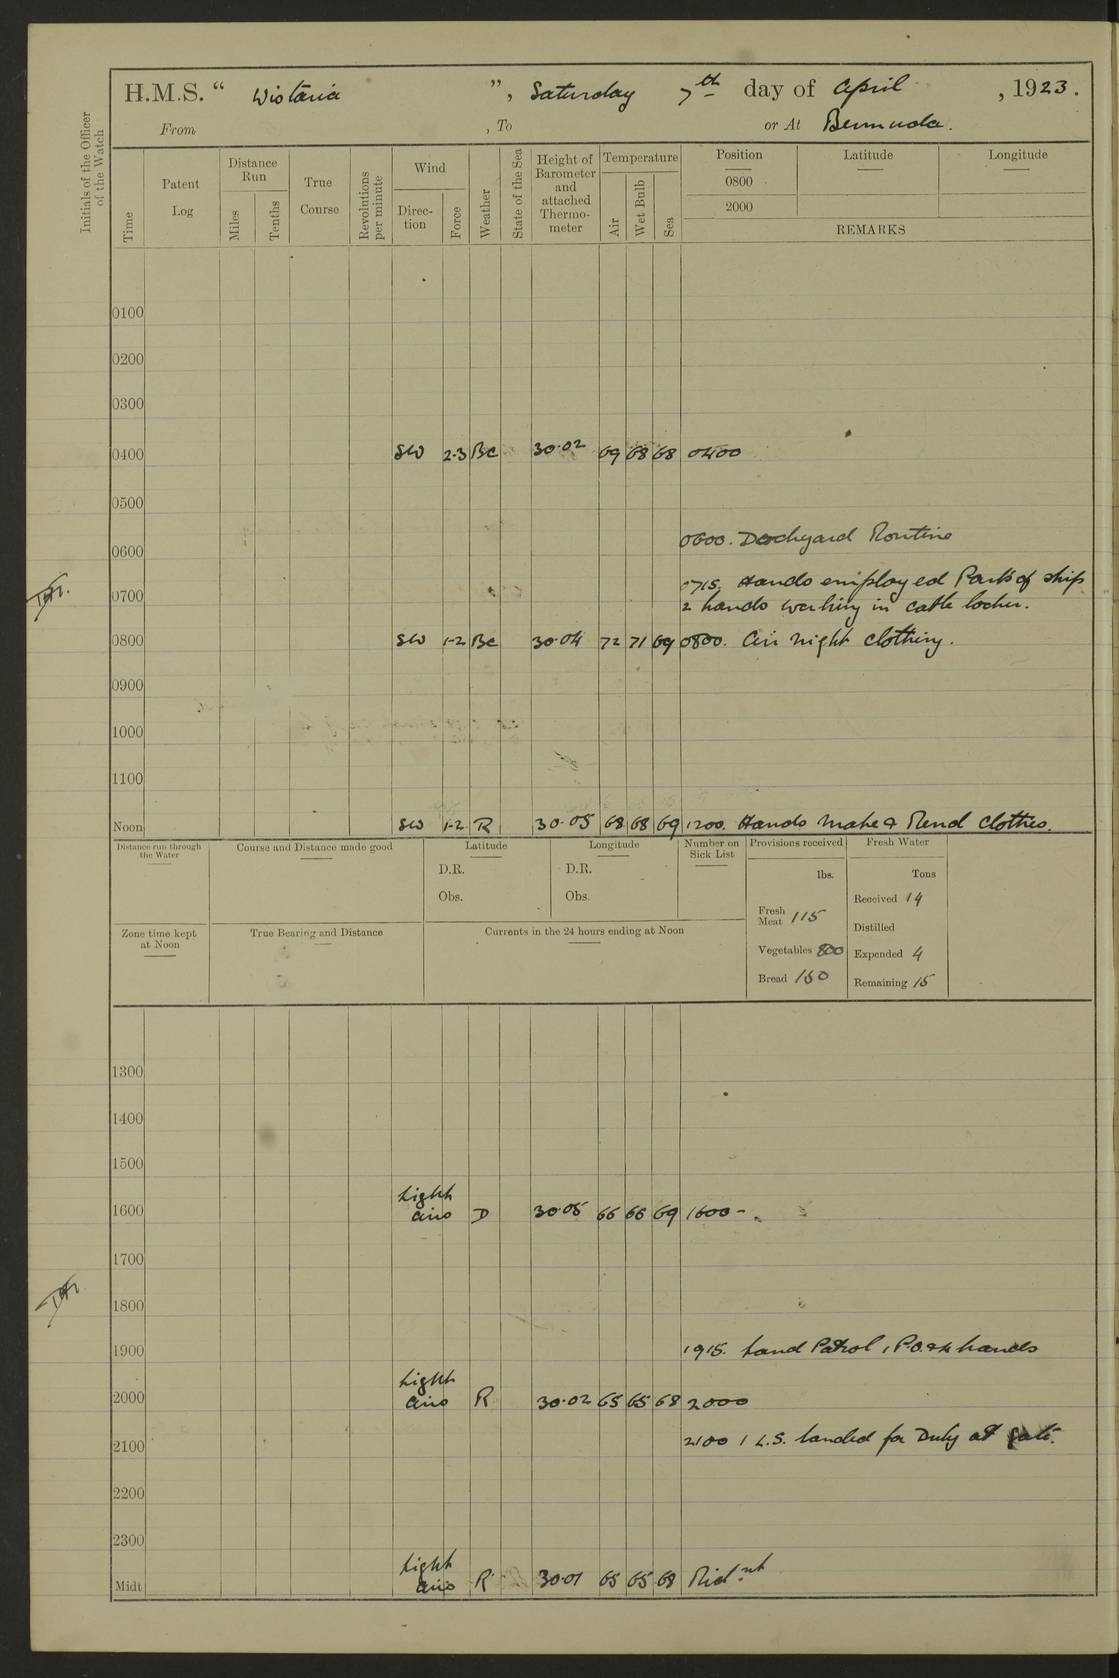 H.M.S. “ Wistaria ”, Saturday 7th day of April, 1923.
From , To or At Bermuda.
Initials of the Officer
of the Watch
Time
Patent
Log
Distance
Run
Miles
Tenths
True
Course
Revolutions
per minute
Wind
Direc-
tion
Force
Weather
State of the Sea
Height of
Barometer
and
attached
Thermo-
meter
Temperature
Air
Wet Bulb
Sea
Position Latitude Longitude
0800
2000
REMARKS
0100
0200
0300
0400 SW 2-3 Bc 30·02 69 68 68 0400
0500
0600. Dockyard Routine
0600
0715. Hands employed Part of ship
0700 2 hands working in cable locker.
0800 SW 1-2 Bc 30·04 72 71 69 0800. Air night clothing.
0900
1000
1100
Noon SW 1-2 R 30·05 68 68 69 1200. Hands Make & Mend Clothes.
Distance run through
the Water
Course and Distance made good
Latitude
D.R.
Obs.
Longitude
D.R.
Obs.
Number on
Sick List
Provisions received
lbs.
Fresh
Meat 115
Vegetables 800
Bread 150
Fresh Water
Tons
Received 14
Distilled
Expended 4
Remaining 15
Zone time kept
at Noon
True Bearing and Distance
Currents in the 24 hours ending at Noon
1300
1400
1500
Light
1600 airs D 30·05 66 66 69 1600 -
1700
1800
1900 1915. Land Patrol 1 P.O. & 4 hands
Light
2000 airs R 30·02 65 65 68 2000
2100 2100 1 L.S. landed for Duty at Gate.
2200
2300
Light
Midt airs R 30·01 65 65 68 Midnt